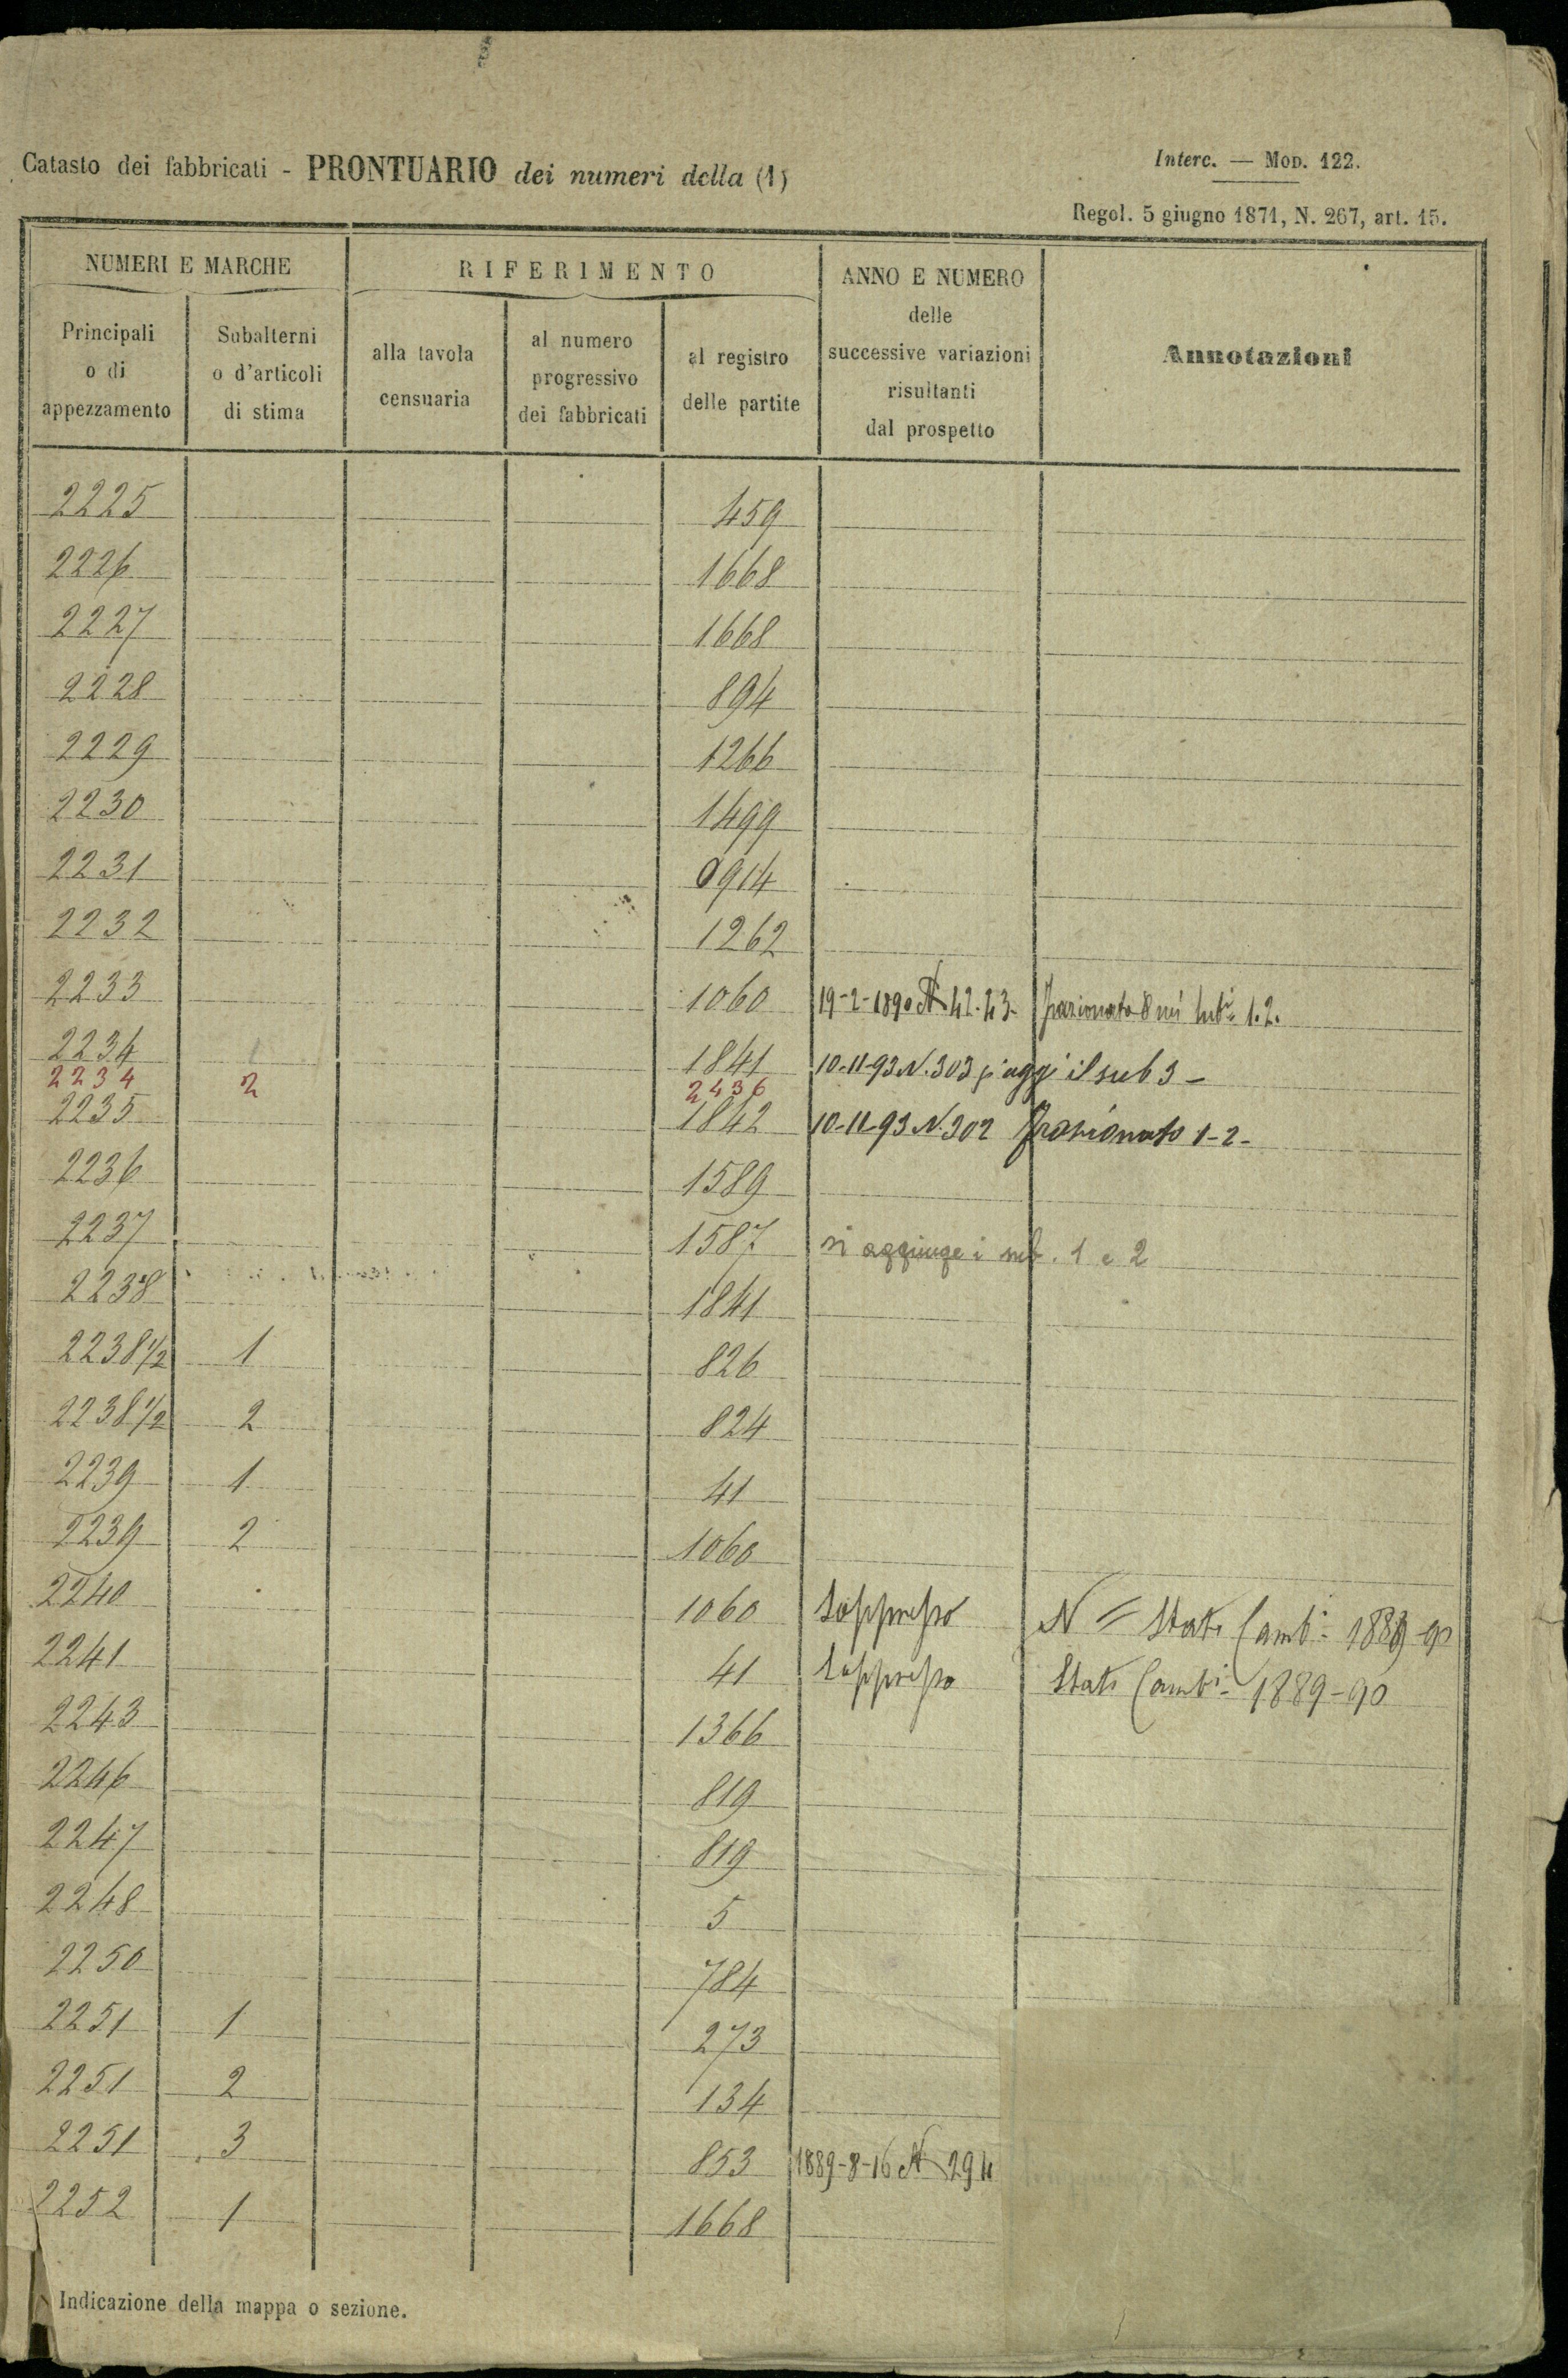 Catasto dei fabbricati - PRONTUARIO dei numeri della (1)
Interc. — Mod. 122.
Regol. 5 giugno 1871, N. 267, art. 15.
NUMERI E MARCHE
RIFERIMENTO
ANNO E NUMERO delle successive variazioni risultanti dal prospetto
Annotazioni
Principali o di appezzamento
Subalterni o d'articoli di stima
alla tavola censuaria
al numero progressivo dei fabbricati
al registro delle partite
2225 459
2226 1668
2227 1668
2228 894
2229 1266
2230 1499
2231 0914
2232 1262
2233 1060 19-2-1890 N 42.43. frazionato 1.2.
2234 1 1841 10-11-93 N. 303 si aggi il sub 3 -
2234 2 2436
2235 1842 10-11-93 N. 302 frazionato 1-2-
2236 1589
2237 1587 si aggiunge i sub. 1 e 2
2238 1841
2238 1/2 1 826
2238 1/2 2 824
2239 1 41
2239 2 1060
2240 1060 Soppresso N = Stati Camb.i 1889-90
2241 41 Soppresso Stati Camb.i 1889-90
2243 1366
2246 819
2247 819
2248 5
2250 784
2251 1 273
2251 2 134
2251 3 853 1889-8-16 N 294
2252 1 1668
Indicazione della mappa o sezione.